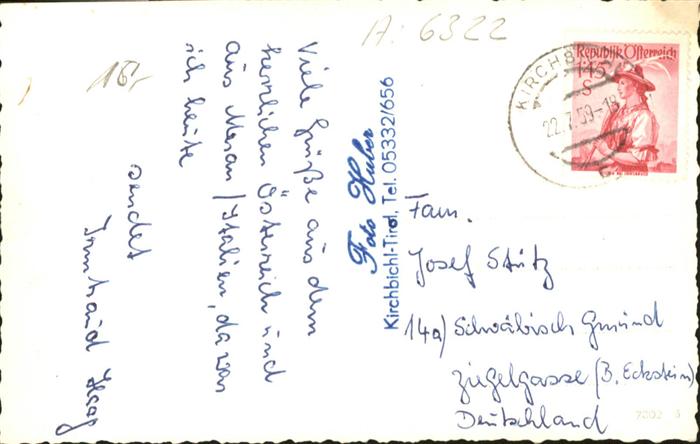 A: 6322
15,-
Viele Grüße aus dem
herzlichen Österreich und
aus Meran/Italien, da war
ich heute
sendet
Irmtraud Haag
Foto Huber
Kirchbichl-Tirol, Tel. 05332/656
Republik Österreich
1.45
S
KIRCHB
22.7.59-18
Fam.
Josef Stütz
14a) Schwäbisch Gmünd
Ziegelgasse (B. Eckstein)
Deutschland
7302